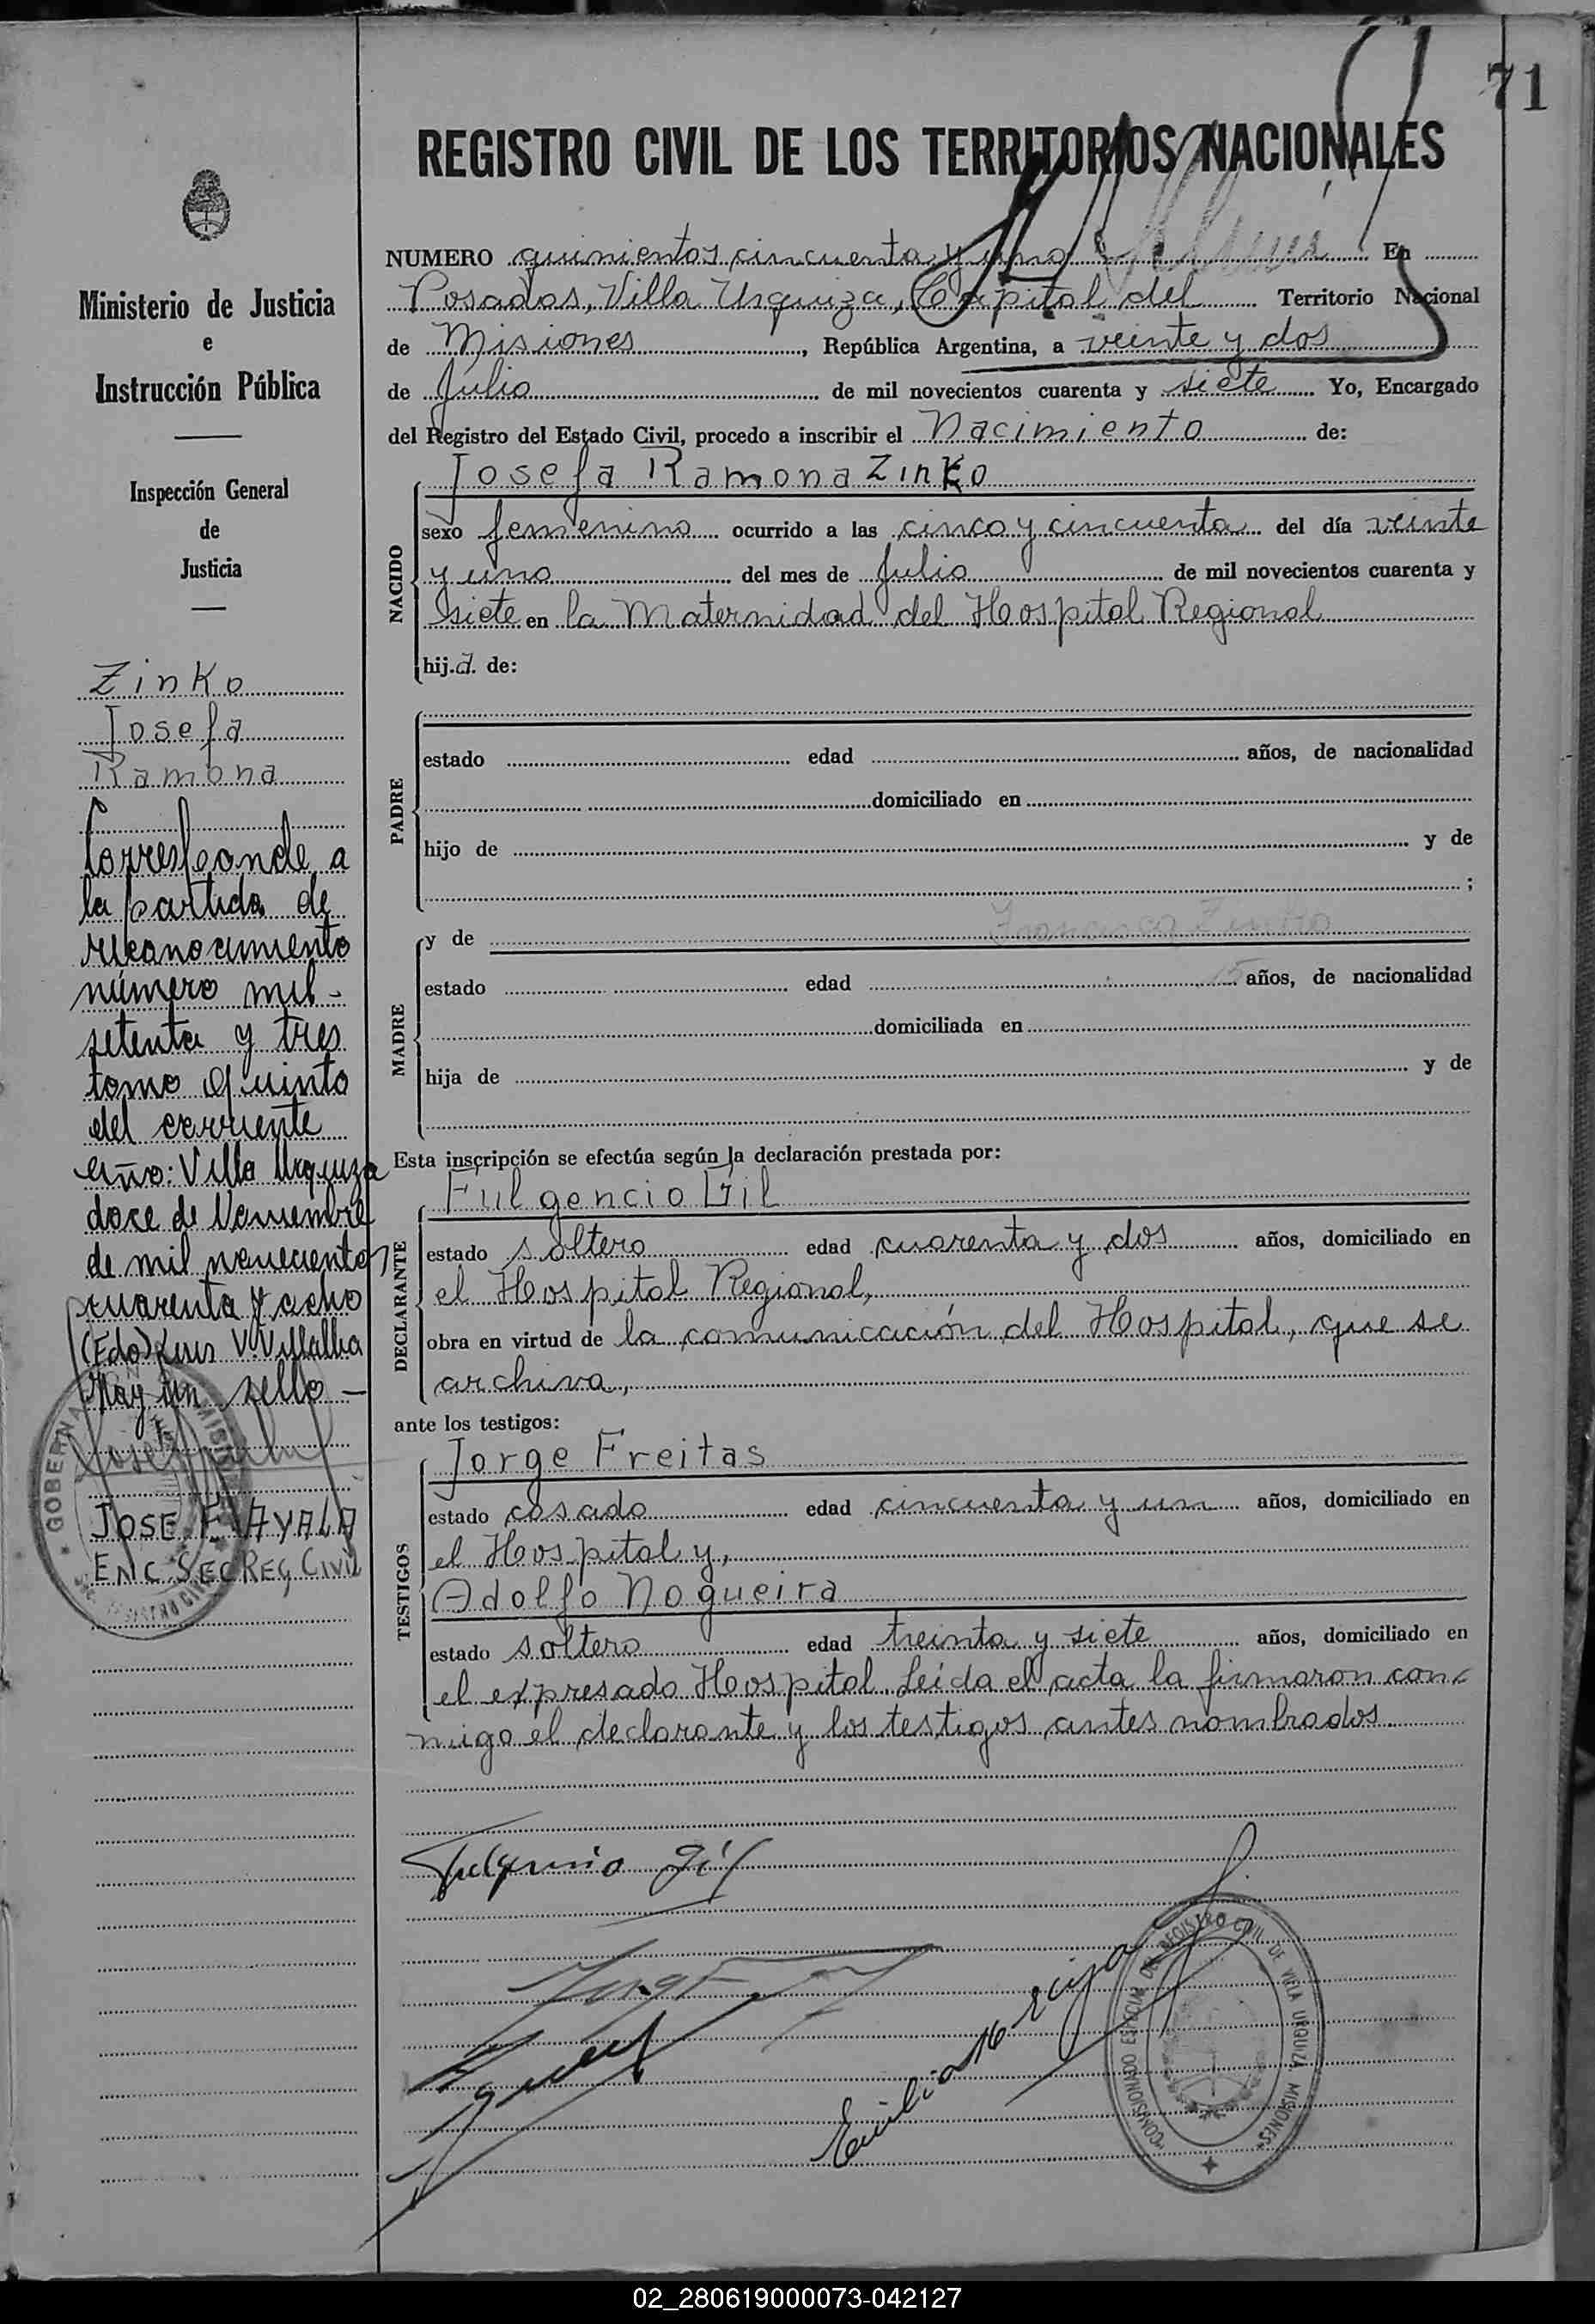 71
REGISTRO CIVIL DE LOS TERRITORIOS NACIONALES
NUMERO quinientos cincuenta y uno En
Posadas, Villa Urquiza, Capital del Territorio Nacional
de Misiones, República Argentina, a veinte y dos
de Julio de mil novecientos cuarenta y siete Yo, Encargado
del Registro del Estado Civil, procedo a inscribir el Nacimiento de:
Ministerio de Justicia
e
Instrucción Pública
Inspección General
de
Justicia
Zinko
Josefa
Ramona
Corresponde a
la partida de
reconocimiento
número mil
setenta y tres
tomo quinto
del corriente
año: Villa Urquiza
doce de Noviembre
de mil novecientos
cuarenta y ocho
(Fdo) Luis V. Villalba
Hay un sello —
JOSE E. AYALA
ENC. SEC REG. CIVIL
NACIDO
Josefa Ramona Zinko
sexo femenino ocurrido a las cinco y cincuenta del día veinte
y uno del mes de Julio de mil novecientos cuarenta y
siete en la Maternidad del Hospital Regional
hij.a. de:
PADRE
estado edad años, de nacionalidad
domiciliado en
hijo de y de
;
MADRE
y de Francisca Zinko
estado edad 15 años, de nacionalidad
domiciliada en
hija de y de
Esta inscripción se efectúa según la declaración prestada por:
DECLARANTE
Fulgencio Gil
estado soltero edad cuarenta y dos años, domiciliado en
el Hospital Regional,
obra en virtud de la comunicación del Hospital, que se
archiva,
ante los testigos:
TESTIGOS
Jorge Freitas
estado casado edad cincuenta y un años, domiciliado en
el Hospital y,
Adolfo Nogueira
estado soltero edad treinta y siete años, domiciliado en
el expresado Hospital. Leída el acta la firmaron con-
migo el declarante y los testigos antes nombrados
Fulgencio Gil
COMISIONADO ESPECIAL DEL REGISTRO CIVIL DE VILLA URQUIZA MISIONES
02_280619000073-042127